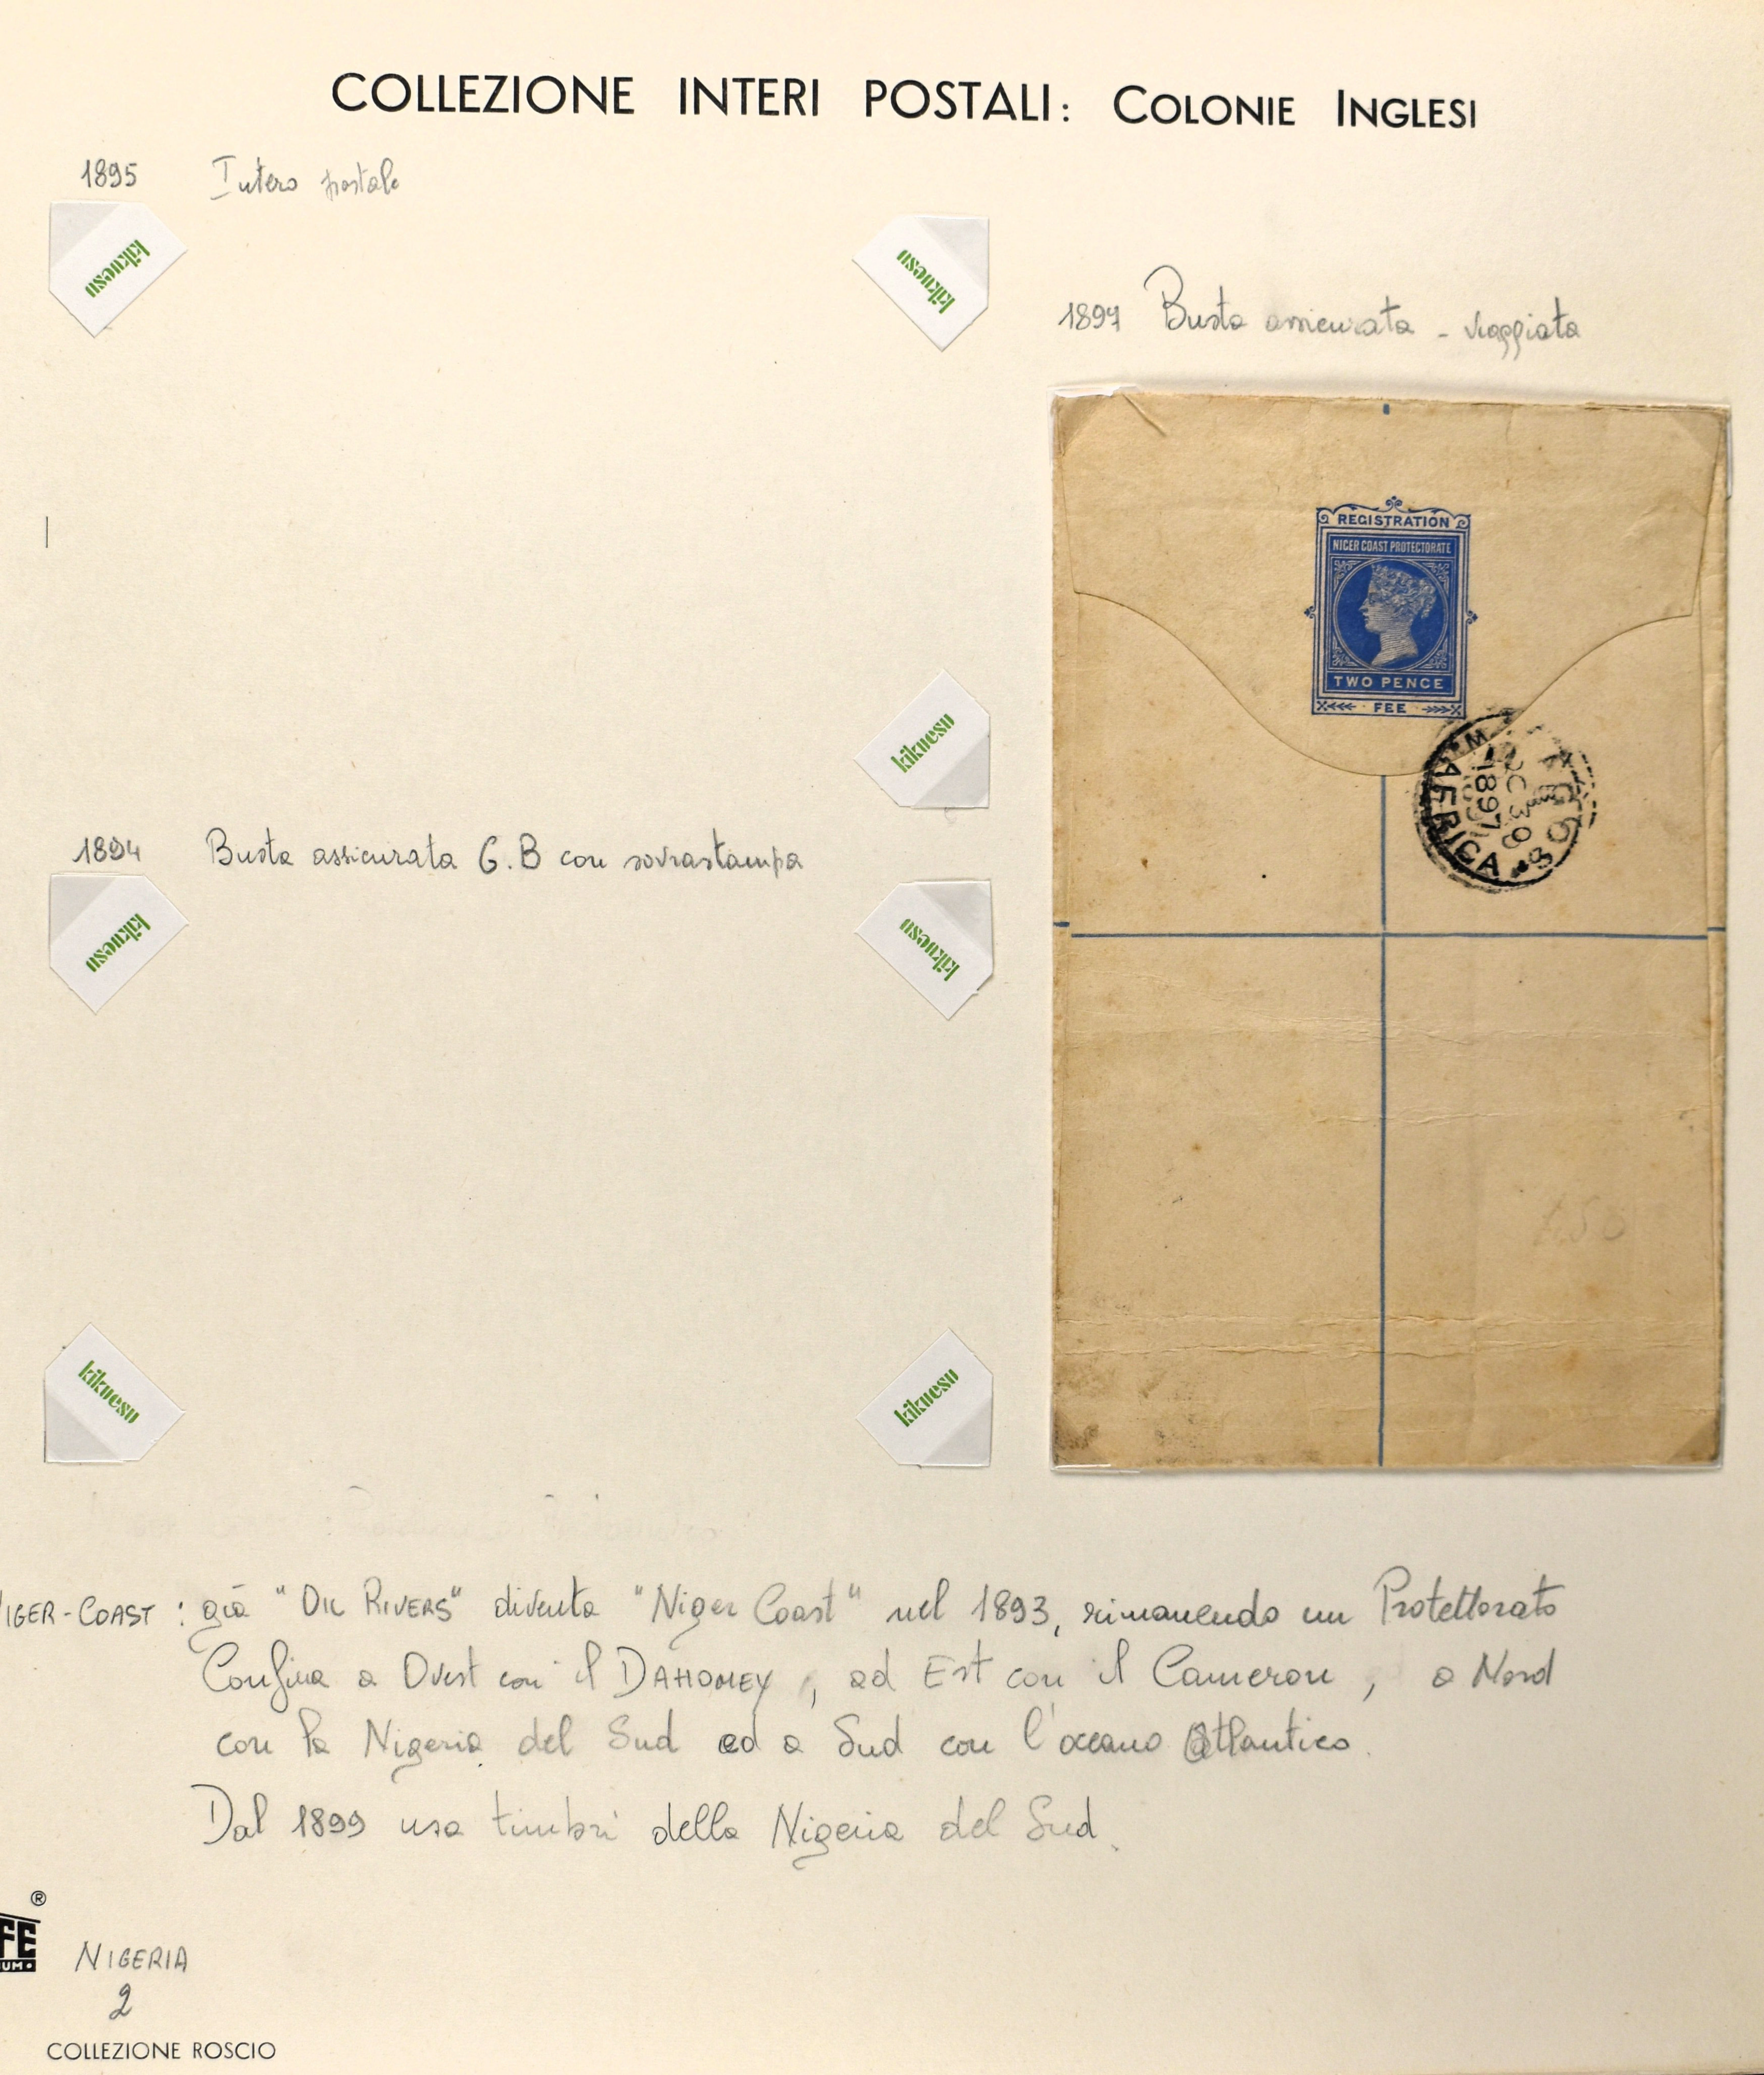 COLLEZIONE INTERI POSTALI: COLONIE INGLESI
1895 Intero postale
kikueso
kikueso
1897 Busta assicurata - viaggiata
REGISTRATION
NIGER COAST PROTECTORATE
TWO PENCE
FEE
LAGOS
OC 30
1897
W. AFRICA
kikueso
1894 Busta assicurata G.B con sovrastampa
kikueso
kikueso
kikueso
kikueso
NIGER-COAST: già "OIL RIVERS" diventa "Niger Coast" nel 1893, rimanendo un Protettorato
Confina a Ovest con il DAHOMEY, ad Est con il Cameron, a Nord
con la Nigeria del Sud ed a Sud con l'oceano Atlantico.
Dal 1899 usa timbri della Nigeria del Sud.
®
FE
UM
NIGERIA
2
COLLEZIONE ROSCIO